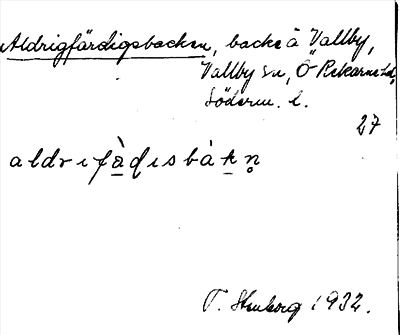 Aldrigfärdigsbacken, backe å Vallby,
Vallby sn, Ö Rekarne hd,
Söderm. l.
27
aldrifàdisbàkn̥
T. Stenborg 1932.